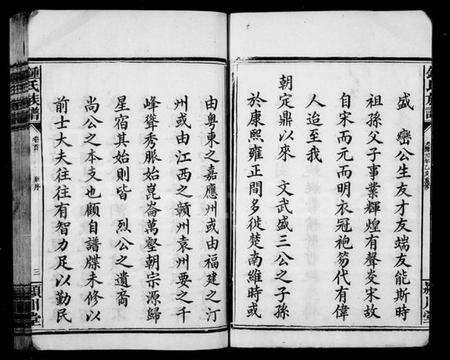 盛 巒公生友才友端友能斯時
祖孫父子事業輝煌有聲炎宋故
自宋而元而明衣冠袍笏代有偉
人迨至我
朝定鼎以來 文武盛三公之子孫
於康熙雍正間多徙楚南維時或
鍾氏族譜
卷首
三
潁川堂
由粵東之嘉應州或由福建之汀
州或由江西之贛州袁州要之千
峰聳秀脈始崑崙萬壑朝宗源歸
星宿其始則皆 烈公之遺裔
尚公之本支也顧自譜牒未修以
前士大夫往往有智力足以勤民